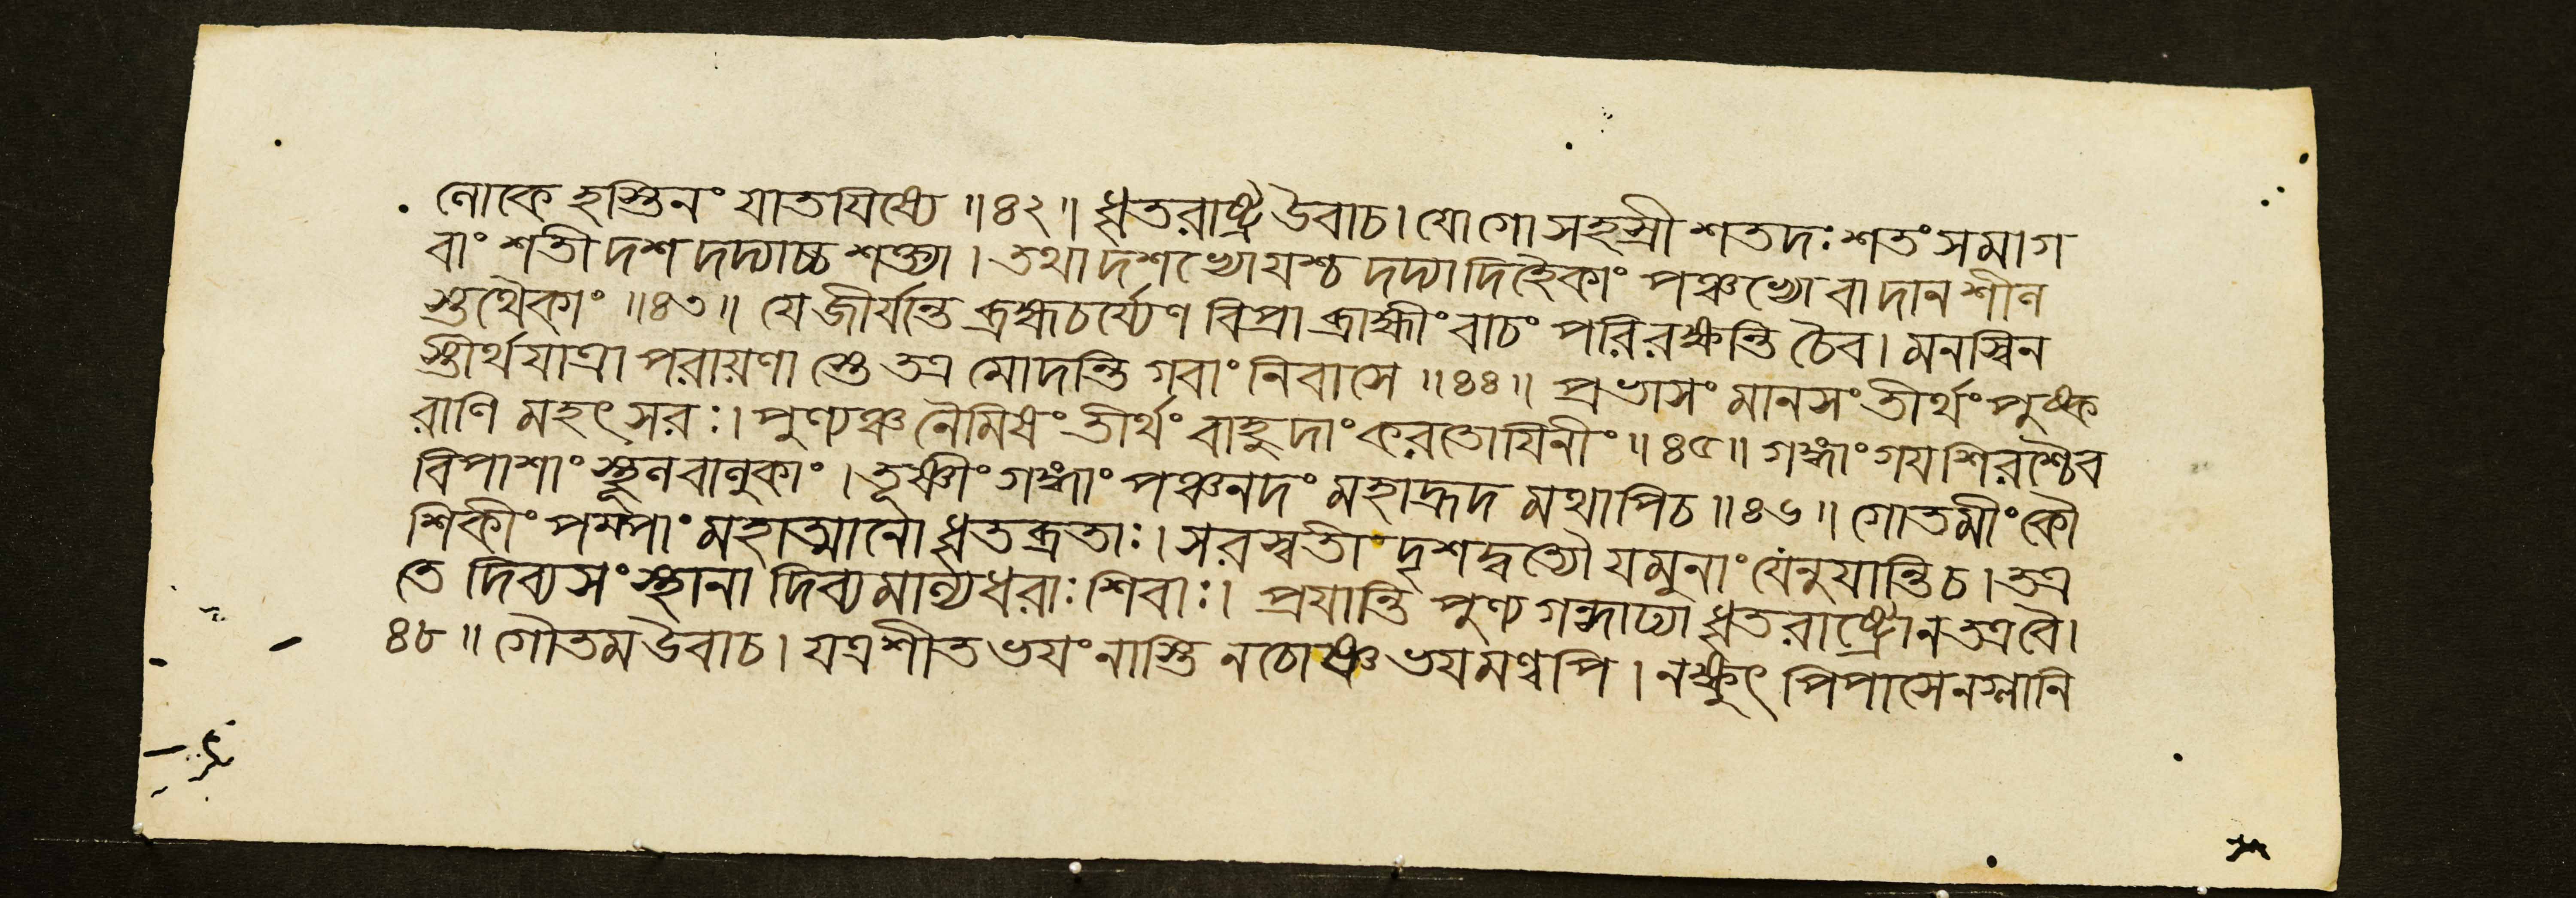 লোকে হস্তিনং যাতযিষ্যে ॥৪২॥ ধৃতরাষ্ট্র উবাচ। যো গো সহস্রী শতদঃ শতং সমাগ
বাং শতী দশ দদ্যাচ্চ শক্ত্যা। তথা দশভ্যো যশ্চ দদ্যাদিহৈকাং পঞ্চভ্যো বা দানশীল
স্তথৈকাং ॥৪৩॥ যে জীর্যন্তে ব্রহ্মচর্য্যেণ বিপ্রা ব্রাহ্মীং বাচং পরিরক্ষন্তি চৈব। মনস্বিন
স্তীর্থযাত্রা পরায়ণা স্তে তত্র মোদন্তি গবাং নিবাসে ॥৪৪॥ প্রভাসং মানসং তীর্থং পুষ্ক
রাণি মহৎসরঃ। পুণ্যঞ্চ নৈমিষং তীর্থং বাহুদাং করতোযিনীং ॥৪৫॥ গঙ্গাং গযশিরশ্চৈব
বিপাশাং স্থূলবালুকাং। তূষ্ণীং গঙ্গাং পঞ্চনদং মহাহ্রদ মথাপিচ ॥৪৬॥ গোতমীং কৌ
শিকীং পম্পাং মহাত্মানো ধৃতব্রতাঃ। সরস্বতী দৃশদ্বত্যৌ যমুনাং যেনুযান্তি চ। তত্র
তে দিব্যসংস্থানা দিব্যমাল্যধরাঃ শিবাঃ। প্রযান্তি পুণ্যগন্ধাঢ্যা ধৃতরাষ্ট্রো ন তত্র বৈ।
৪৮॥ গৌতম উবাচ। যত্র শীত ভযং নাস্তি ন চোষ্ণ ভযমণ্বপি। ন ক্ষুৎ পিপাসে ন গ্লানি